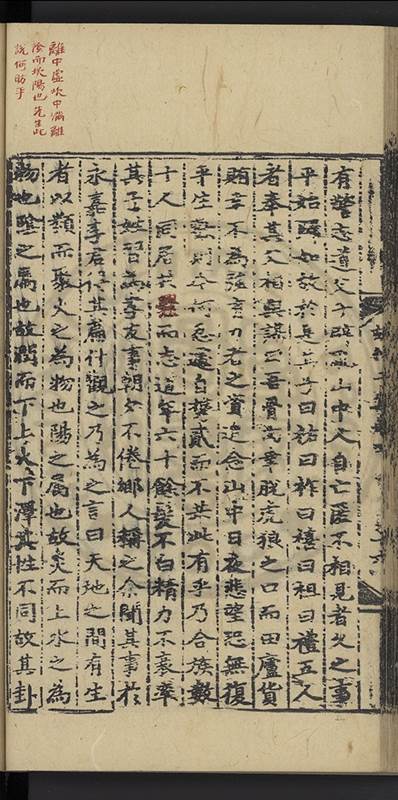 離中虛坎中滿離
陰而坎陽也先生此
說何昉乎
有警志道父子踉山中人自亡匿不相見者久之事
平始歸如故於是其子曰祐曰祚曰禧曰祖曰禮五人
者奉其父相與謀曰吾骨肉幸脫虎狼之口而田廬貨
賄幸不為強有力者之資追念山中日夜悲望恐無復
平生歡則今何忍遽自攜貳而不共此有乎乃合族數
十人同居共爨而志道年六十餘髮不白精力不衰率
其子姓習為孝友事朝夕不倦鄉人稱之余聞其事於
永嘉李君得其篇什觀之乃為之言曰天地之間有生
者以類而聚火之為物也陽之屬也故炎而上水之為
物也陰之屬也故潤而下上火下澤其性不同故其卦